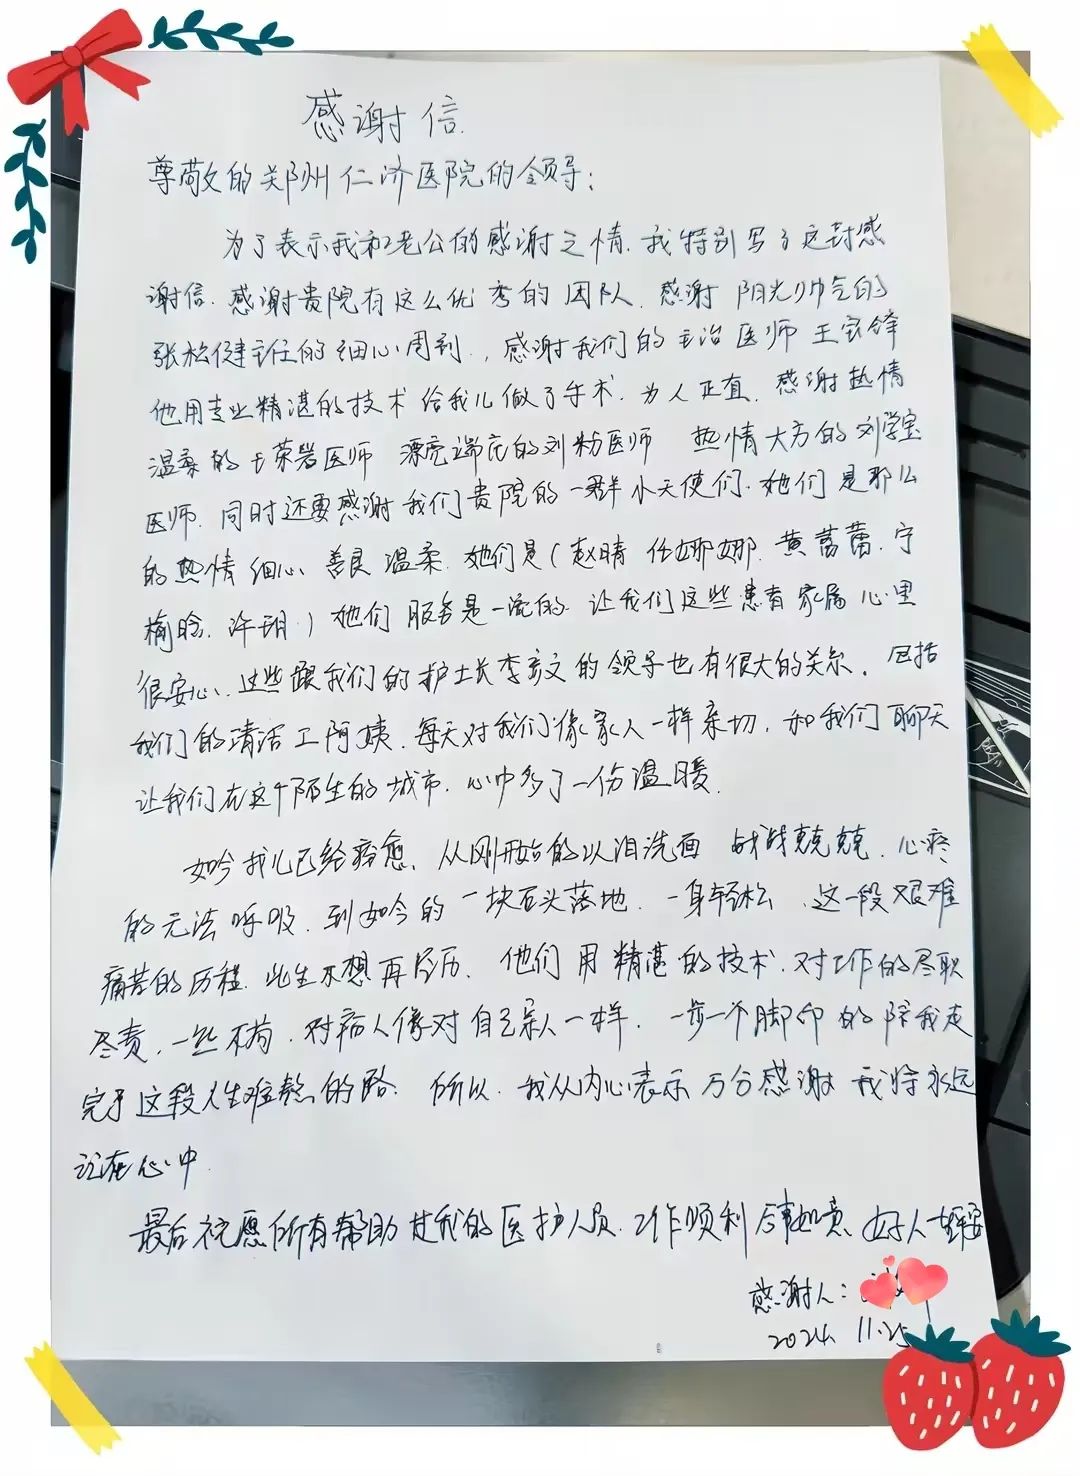 感谢信.
尊敬的郑州仁济医院的领导:
为了表示我和老公的感谢之情.我特别写了这封感
谢信.感谢贵院有这么优秀的团队.感谢 阳光帅气的
张松健主任的细心周到.,感谢我们的主治医师王家锋
他用专业精湛的技术 给我儿做了手术.为人正直.感谢热情
温柔的 荣岩医师 漂亮端庄的刘粉医师 热情大方的刘学宝
医师.同时还要感谢我们贵院的一群小天使们.她们是那么
的热情 细心、善良 温柔.她们是(赵晴 任娜娜.黄蕾蕾.宁
晗.许玥.)她们 服务是一流的.让我们这些患者家属心里
很安心、这些跟我们的护士长李彦文的领导也有很大的关尔.包括
我们的清洁工阿姨.每天对我们像家人一样亲切.和我们聊天
让我们在这个陌生的城市.心中多了一份温暖.
如今我儿已给痊愈、从刚开始的以泪洗面 战战克克.心疼
的无法呼吸.到如今的一块石头落地.一身轻松.这一段艰难
痛苦的历程.此生不想再经历.他们用精湛的技术.对工作的尽职
尽责.一丝不苟.对病人像对自己亲人一样.一步一个脚印的陪我走
完了这段人生难熬的路.所以.我从内心表示万分感谢 我将永远
记在心中.
最后祝愿所有帮助过我的医护人员.工作顺利 万事如意.好人一生平安
感谢人:
2024.11.25